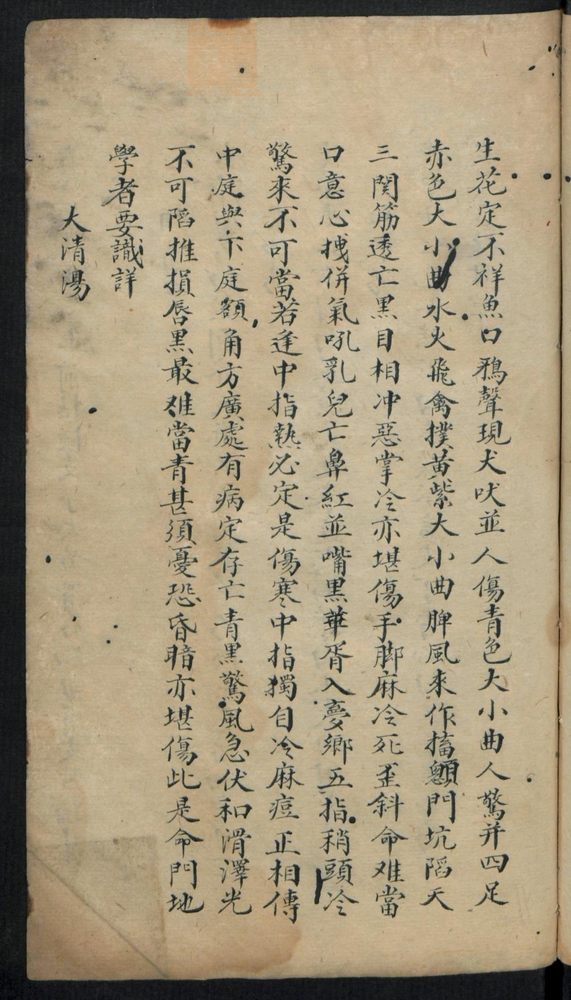 生花定不祥魚口鴉聲現犬吠並人傷青色大小曲人驚并四足
赤色大小曲水火飛禽撲黃紫大小曲脾風來作搐顖門坑陷天
三関筋透亡黑目相冲惡掌冷亦堪傷手脚麻冷死歪斜命难當
口意心拽併氣吼乳兒亡鼻紅並嘴黑華胥入夢鄉五指稍頭冷
驚來不可當若逢中指熱必定是傷寒中指獨自冷麻痘正相傳
中庭與下庭額角方廣處有病定存亡青黑驚風急伏和滑澤光
不可陷推損唇黑最难當青甚須憂恐昏暗亦堪傷此是命門地
學者要識詳
大清湯